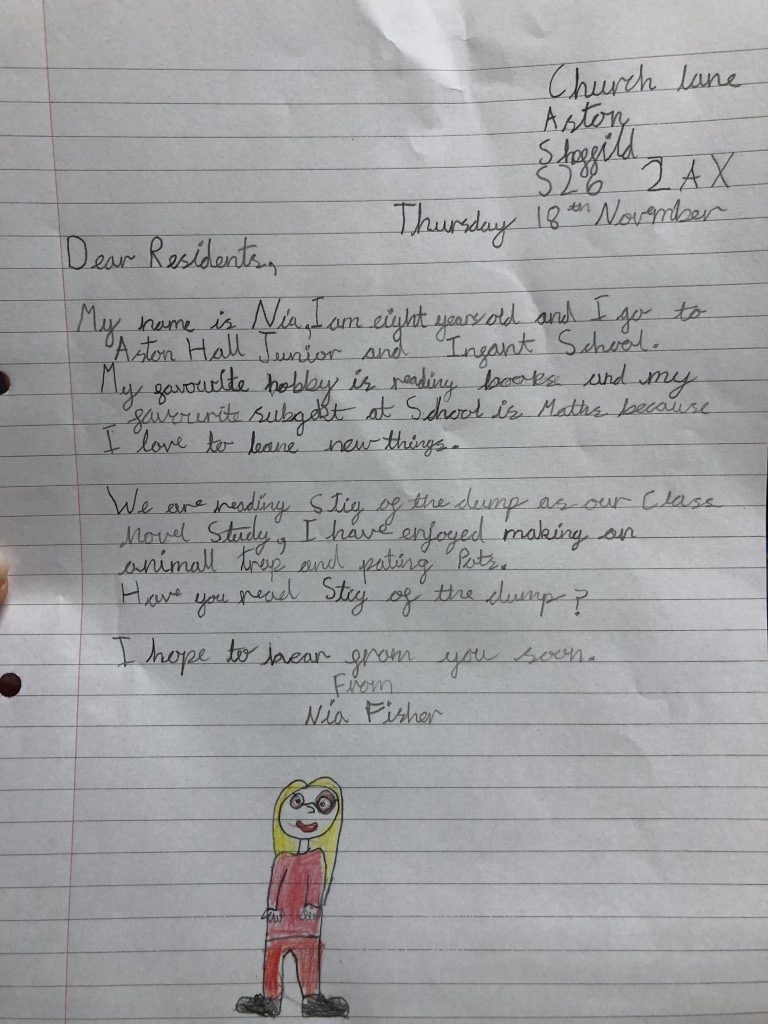 Church Lane
Aston
Sheffild
S26 2AX
Thursday 18th November
Dear Residents,
My name is Nia, I am eight years old and I go to
Aston Hall Junior and Infant School.
My favourite hobby is reading books and my
favourite subgekt at School is Maths because
I love to leane new things.
We are reading Stig of the dump as our Class
Novel Study, I have enjoyed making an
animall trap and pating Pots.
Have you read Stig of the dump?
I hope to hear from you soon.
From
Nia Fisher